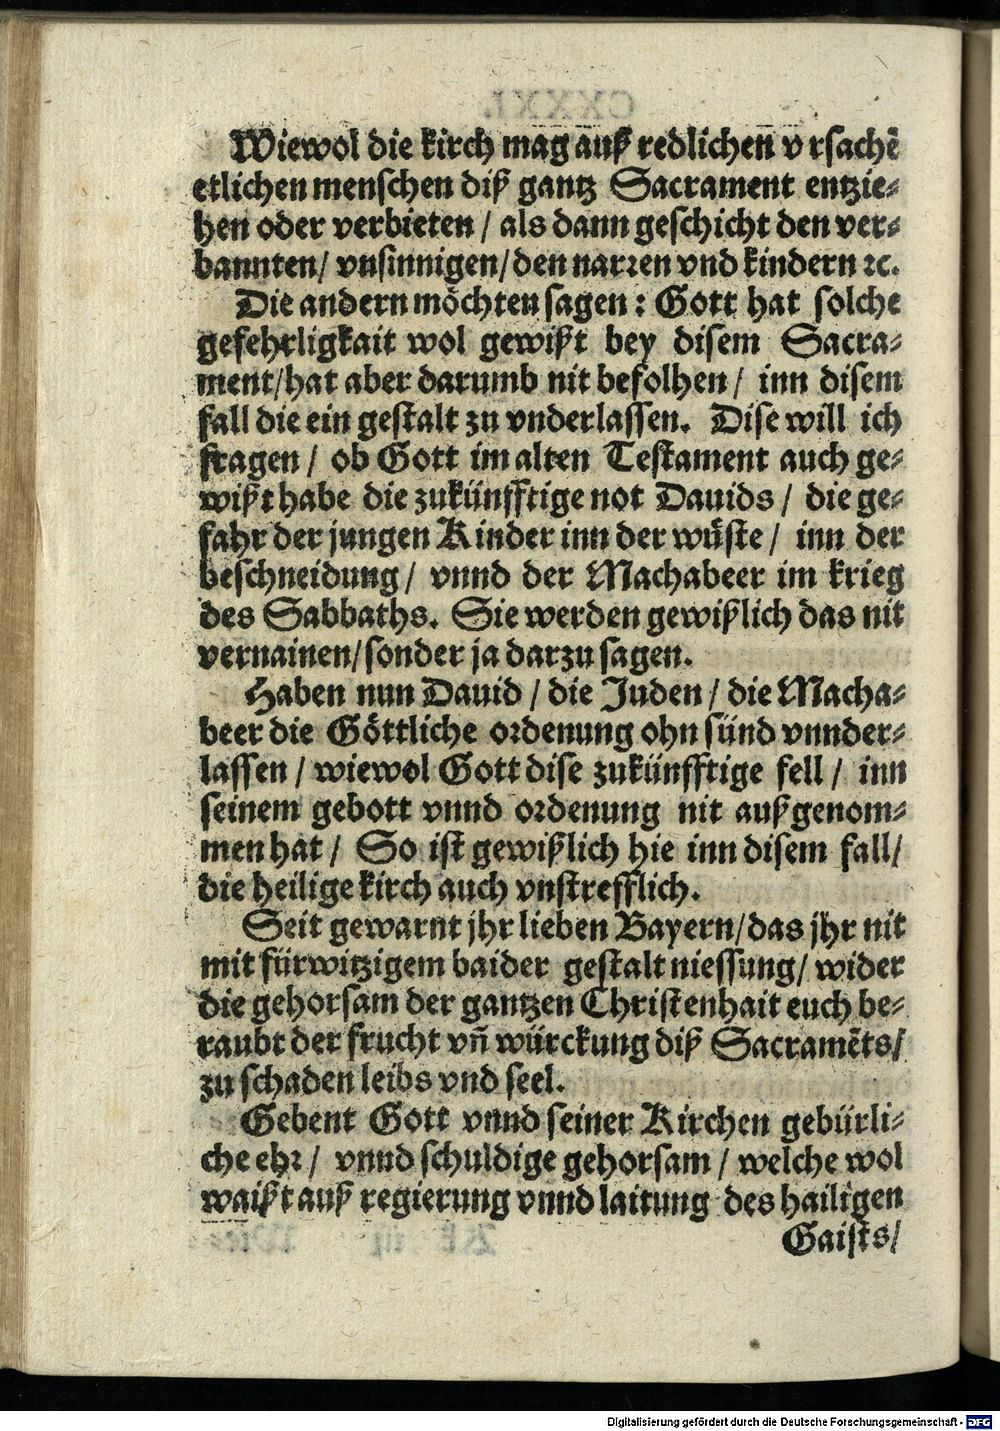 Wiewol die kirch mag auß redlichen vrsachẽ
etlichen menschen diß gantz Sacrament entzie⸗
hen oder verbieten / als dann geschicht den ver⸗
bannten/ vnsinnigen/ den narren vnd kindern ꝛc.
Die andern möchten sagen: Gott hat solche
gefehrligkait wol gewißt bey disem Sacra⸗
ment/hat aber darumb nit befolhen/ inn disem
fall die ein gestalt zu vnderlassen. Dise will ich
fragen/ ob Gott im alten Testament auch ge⸗
wißt habe die zukünfftige not Dauids/ die ge⸗
fahr der jungen Kinder inn der wüste/ inn der
beschneidung/ vnnd der Machabeer im krieg
des Sabbaths. Sie werden gewißlich das nit
vernainen/sonder ja darzu sagen.
Haben nun Dauid / die Juden / die Macha⸗
beer die Göttliche ordenung ohn sünd vnnder⸗
lassen / wiewol Gott dise zukünfftige fell / inn
seinem gebott vnnd ordenung nit außgenom⸗
men hat / So ist gewißlich hie inn disem fall/
die heilige kirch auch vnstrefflich.
Seit gewarnt jhr lieben Bayern/das jhr nit
mit fürwitzigem baider gestalt niessung/ wider
die gehorsam der gantzen Christenhait euch be⸗
raubt der frucht vñ würckung diß Sacramẽts/
zu schaden leibs vnd seel.
Gebent Gott vnnd seiner Kirchen gebürli⸗
che ehr / vnnd schuldige gehorsam / welche wol
waißt auß regierung vnnd laitung des hailigen
Gaists/
Digitalisierung gefördert durch die Deutsche Forschungsgemeinschaft - DFG